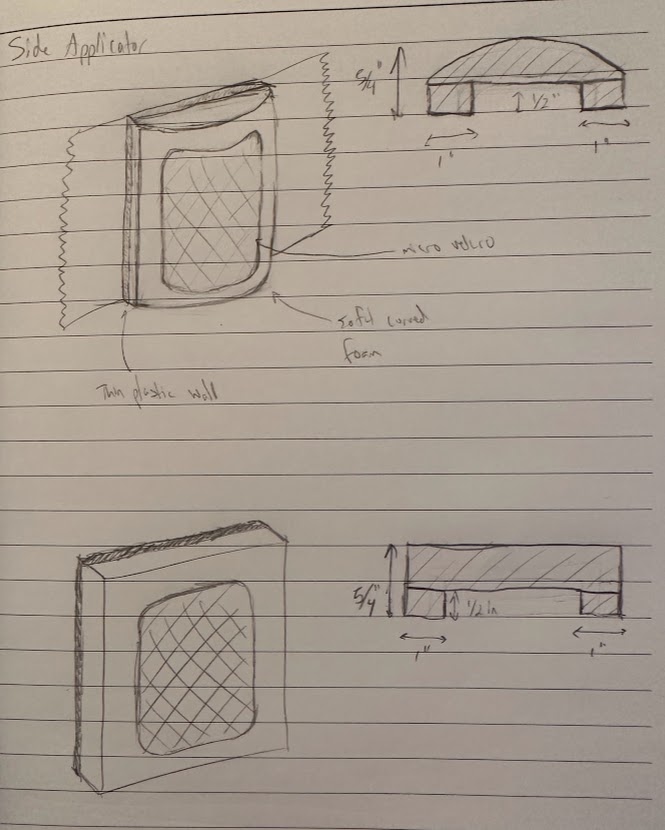 Side Applicator
5/4"
1/2"
1"
1"
micro velcro
soft curved
foam
Thin plastic wall
5/4"
1/2 in
1"
1"